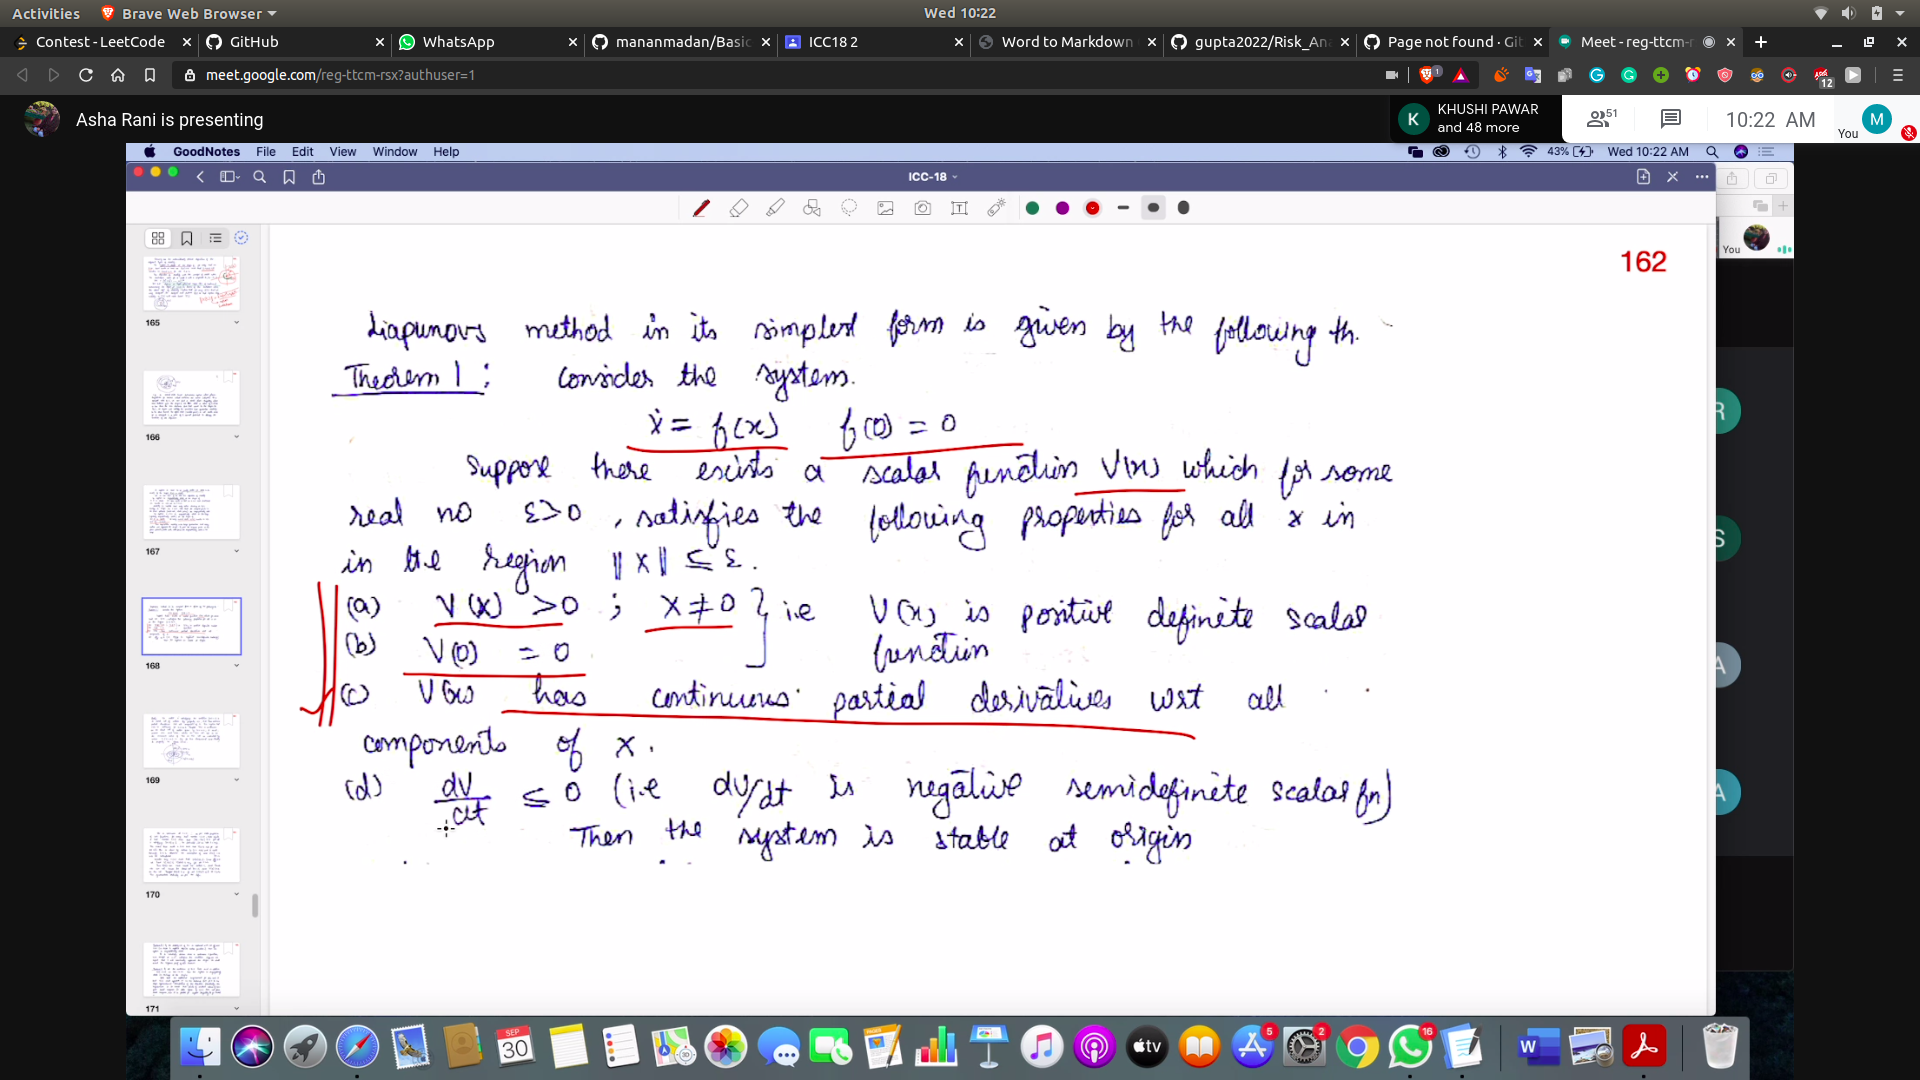 Activities Brave Web Browser Wed 10:22
Contest - LeetCode GitHub WhatsApp mananmadan/Basic ICC18 2 Word to Markdown gupta2022/Risk_An Page not found · Git Meet - reg-ttcm-r
meet.google.com/reg-ttcm-rsx?authuser=1
1 12
Asha Rani is presenting
K KHUSHI PAWAR
and 48 more
51 10:22 AM You M
GoodNotes File Edit View Window Help 43% Wed 10:22 AM
ICC-18
You
162
Liapunovs method in its simplest form is given by the following th.
Theorem 1 : Consider the system.
ẋ = f(x) f(0) = 0
Suppose there exists a scalar function V(x) which for some
real no ε>0 , satisfies the following properties for all x in
in the region ‖x‖ ≤ ε.
(a) V(x) >0 ; x≠0 } i.e V(x) is positive definite scalar
(b) V(0) = 0 function
(c) V(x) has continuous partial derivatives wrt all
components of x.
(d) dV/dt ≤ 0 (i.e dv/dt is negative semidefinite scalar fn)
Then the system is stable at origin
165
166
167
168
169
170
171
R
S
A
A
SEP
30
PAGES
tv
5
2
16
W